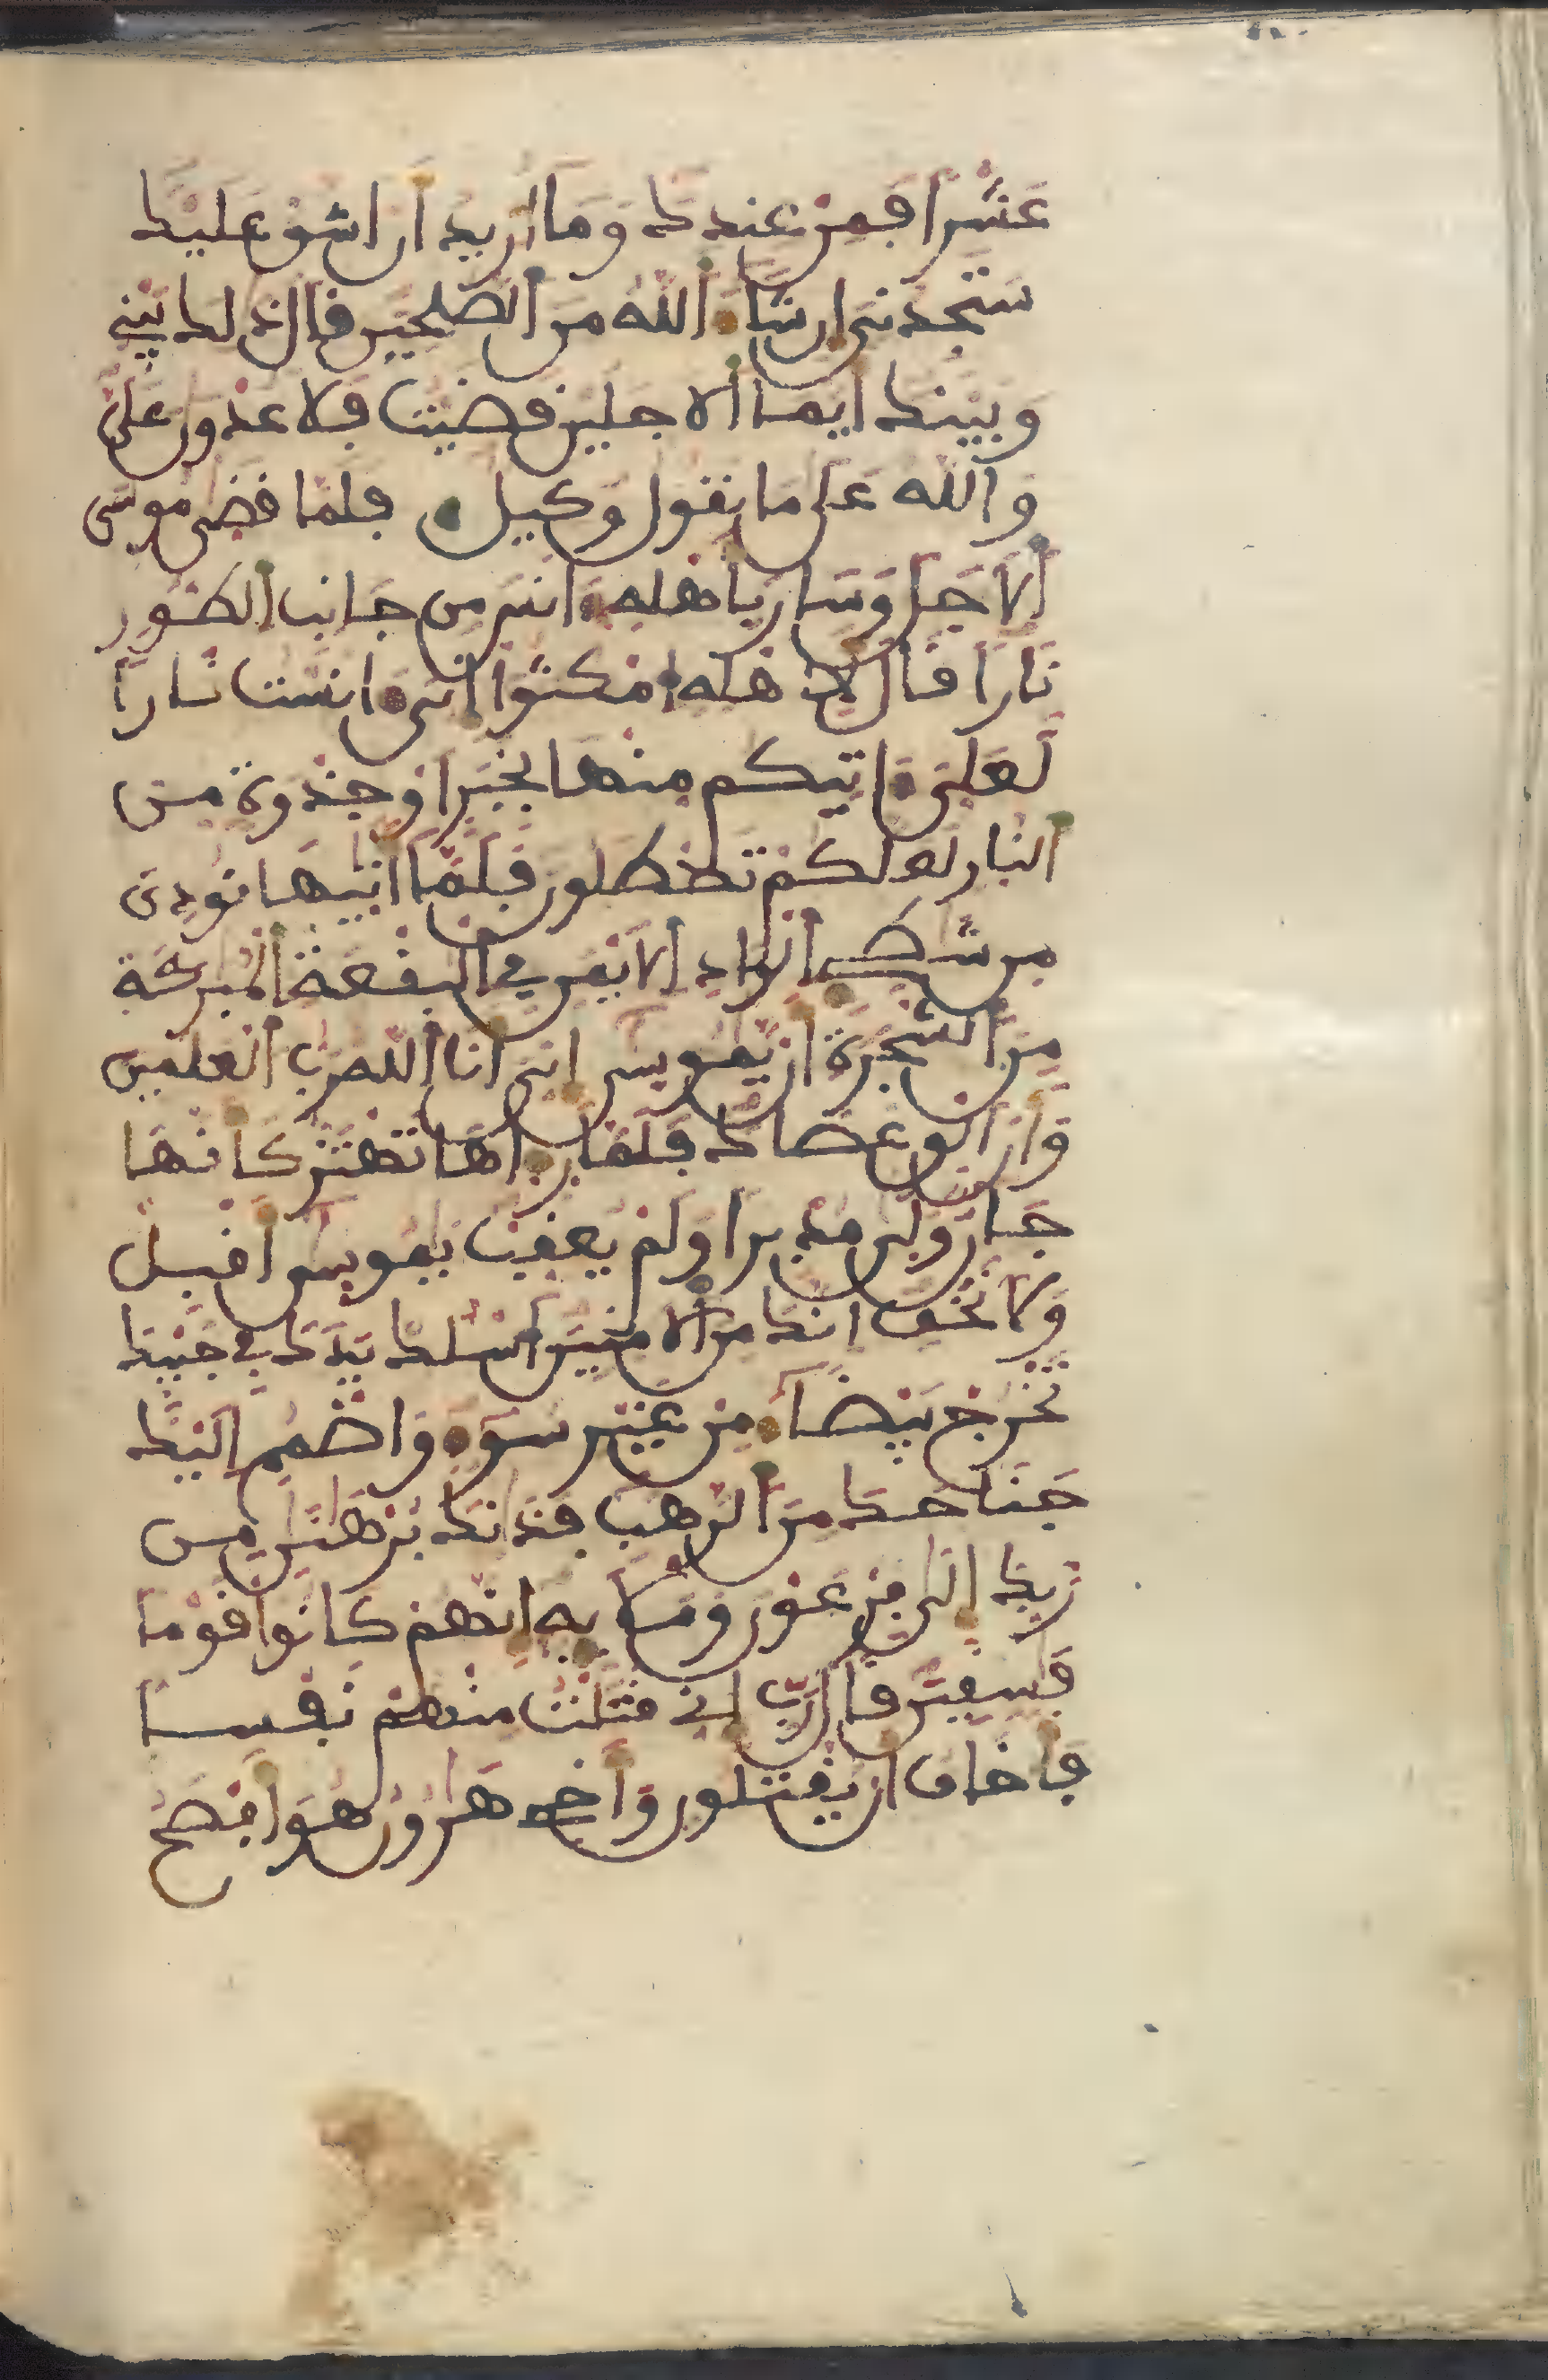 عَشْرًا فَمِنْ عِندِكَ وَمَا أُرِيدُ أَنَ اَشُقَّ عَلَيْكَ
سَتَجِدُنِىَ إِن شَآءَ اَللَّهُ مِنَ اَلصَّٰلِحِينَ قَالَ ذَٰلِكَ بَيْنِى
وَبَيْنَكَ أَيَّمَا اَلَاجَلَيْنِ قَضَيْتُ فَلَا عُدْوَٰنَ عَلَىَّ
وَاللَّهُ عَلَىٰ مَا نَقُولُ وَكِيلٌ فَلَمَّا قَضَىٰ مُوسَى
اَلَاجَلَ وَسَارَ بِأَهْلِهِ ءَانَسَ مِن جَانِبِ اِلطُّورِ
نَارًا قَالَ لِأَهْلِهِ اِمْكُثُوا إِنِّىَ ءَانَسْتُ نَارًا
لَّعَلِّىَ ءَاتِيكُم مِّنْهَا بِخَبَرٍ اَوْ جِذْوَةٍ مِّنَ
اَلنَّارِ لَعَلَّكُمْ تَصْطَلُونَ فَلَمَّا أَتَيٰهَا نُودِىَ
مِن شَٰطِىِٕ اِلْوَادِ اِلَايْمَنِ فِى اِلْبُقْعَةِ اِلْمُبَٰرَكَةِ
مِنَ اَلشَّجَرَةِ أَنْ يَّٰمُوسَىٰ إِنِّىَ أَنَا اَللَّهُ رَبُّ اُلْعَٰلَمِينَ
وَأَنَ اَلْقِ عَصَاكَ فَلَمَّا رَءَاهَا تَهْتَزُّ كَأَنَّهَا
جَانٌّ وَلَّىٰ مُدْبِرًا وَلَمْ يُعَقِّبْ يَٰمُوسَىٰ أَقْبِلْ
وَلَا تَخَفِ اِنَّكَ مِنَ اَلَامِنِينَ اَسْلُكْ يَدَكَ فِى جَيْبِكَ
تَخْرُجْ بَيْضَآءَ مِنْ غَيْرِ سُوٓءٍ وَاضْمُمِ اِلَيْكَ
جَنَاحَكَ مِنَ اَلرَّهَبِ فَذَٰنِكَ بُرْهَٰنَٰنِ مِن
رَّبِّكَ إِلَىٰ فِرْعَوْنَ وَمَلَإِيْهِ إِنَّهُمْ كَانُوا قَوْمًا
فَٰسِقِينَ قَالَ رَبِّ إِنِّى قَتَلْتُ مِنْهُمْ نَفْسًا
فَأَخَافُ أَنْ يَّقْتُلُونِ وَأَخِى هَٰرُونُ هُوَ أَفْصَحُ